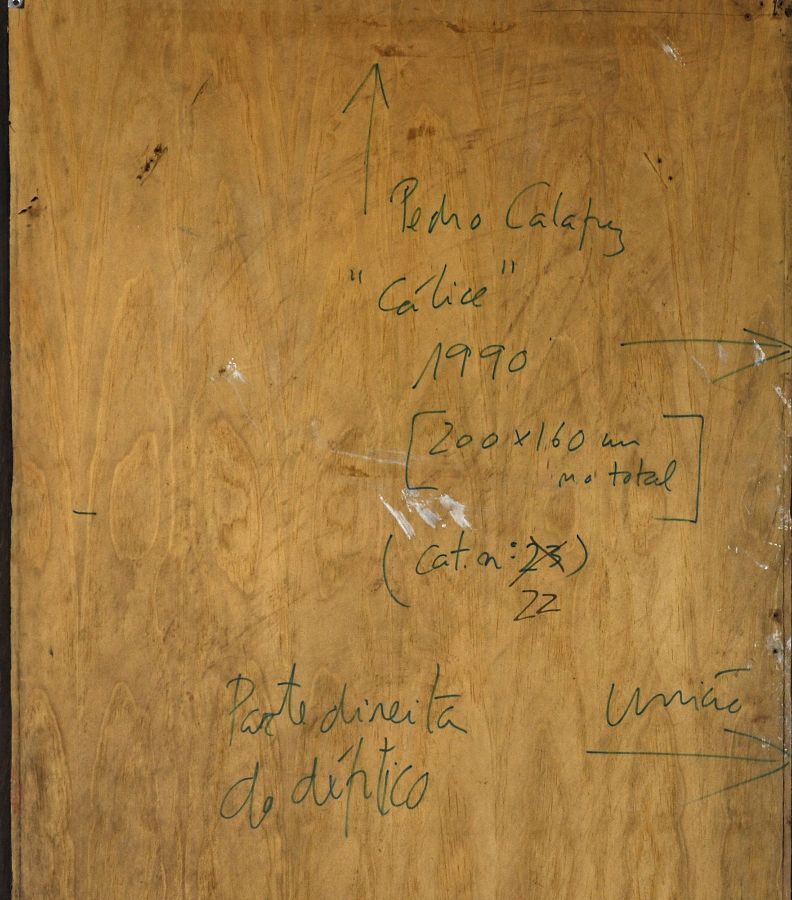 Pedro Calapez
"Cálice"
1990
[200x160 cm
no total]
(cat. n: 23)
22
Parte direita
do díptico
União